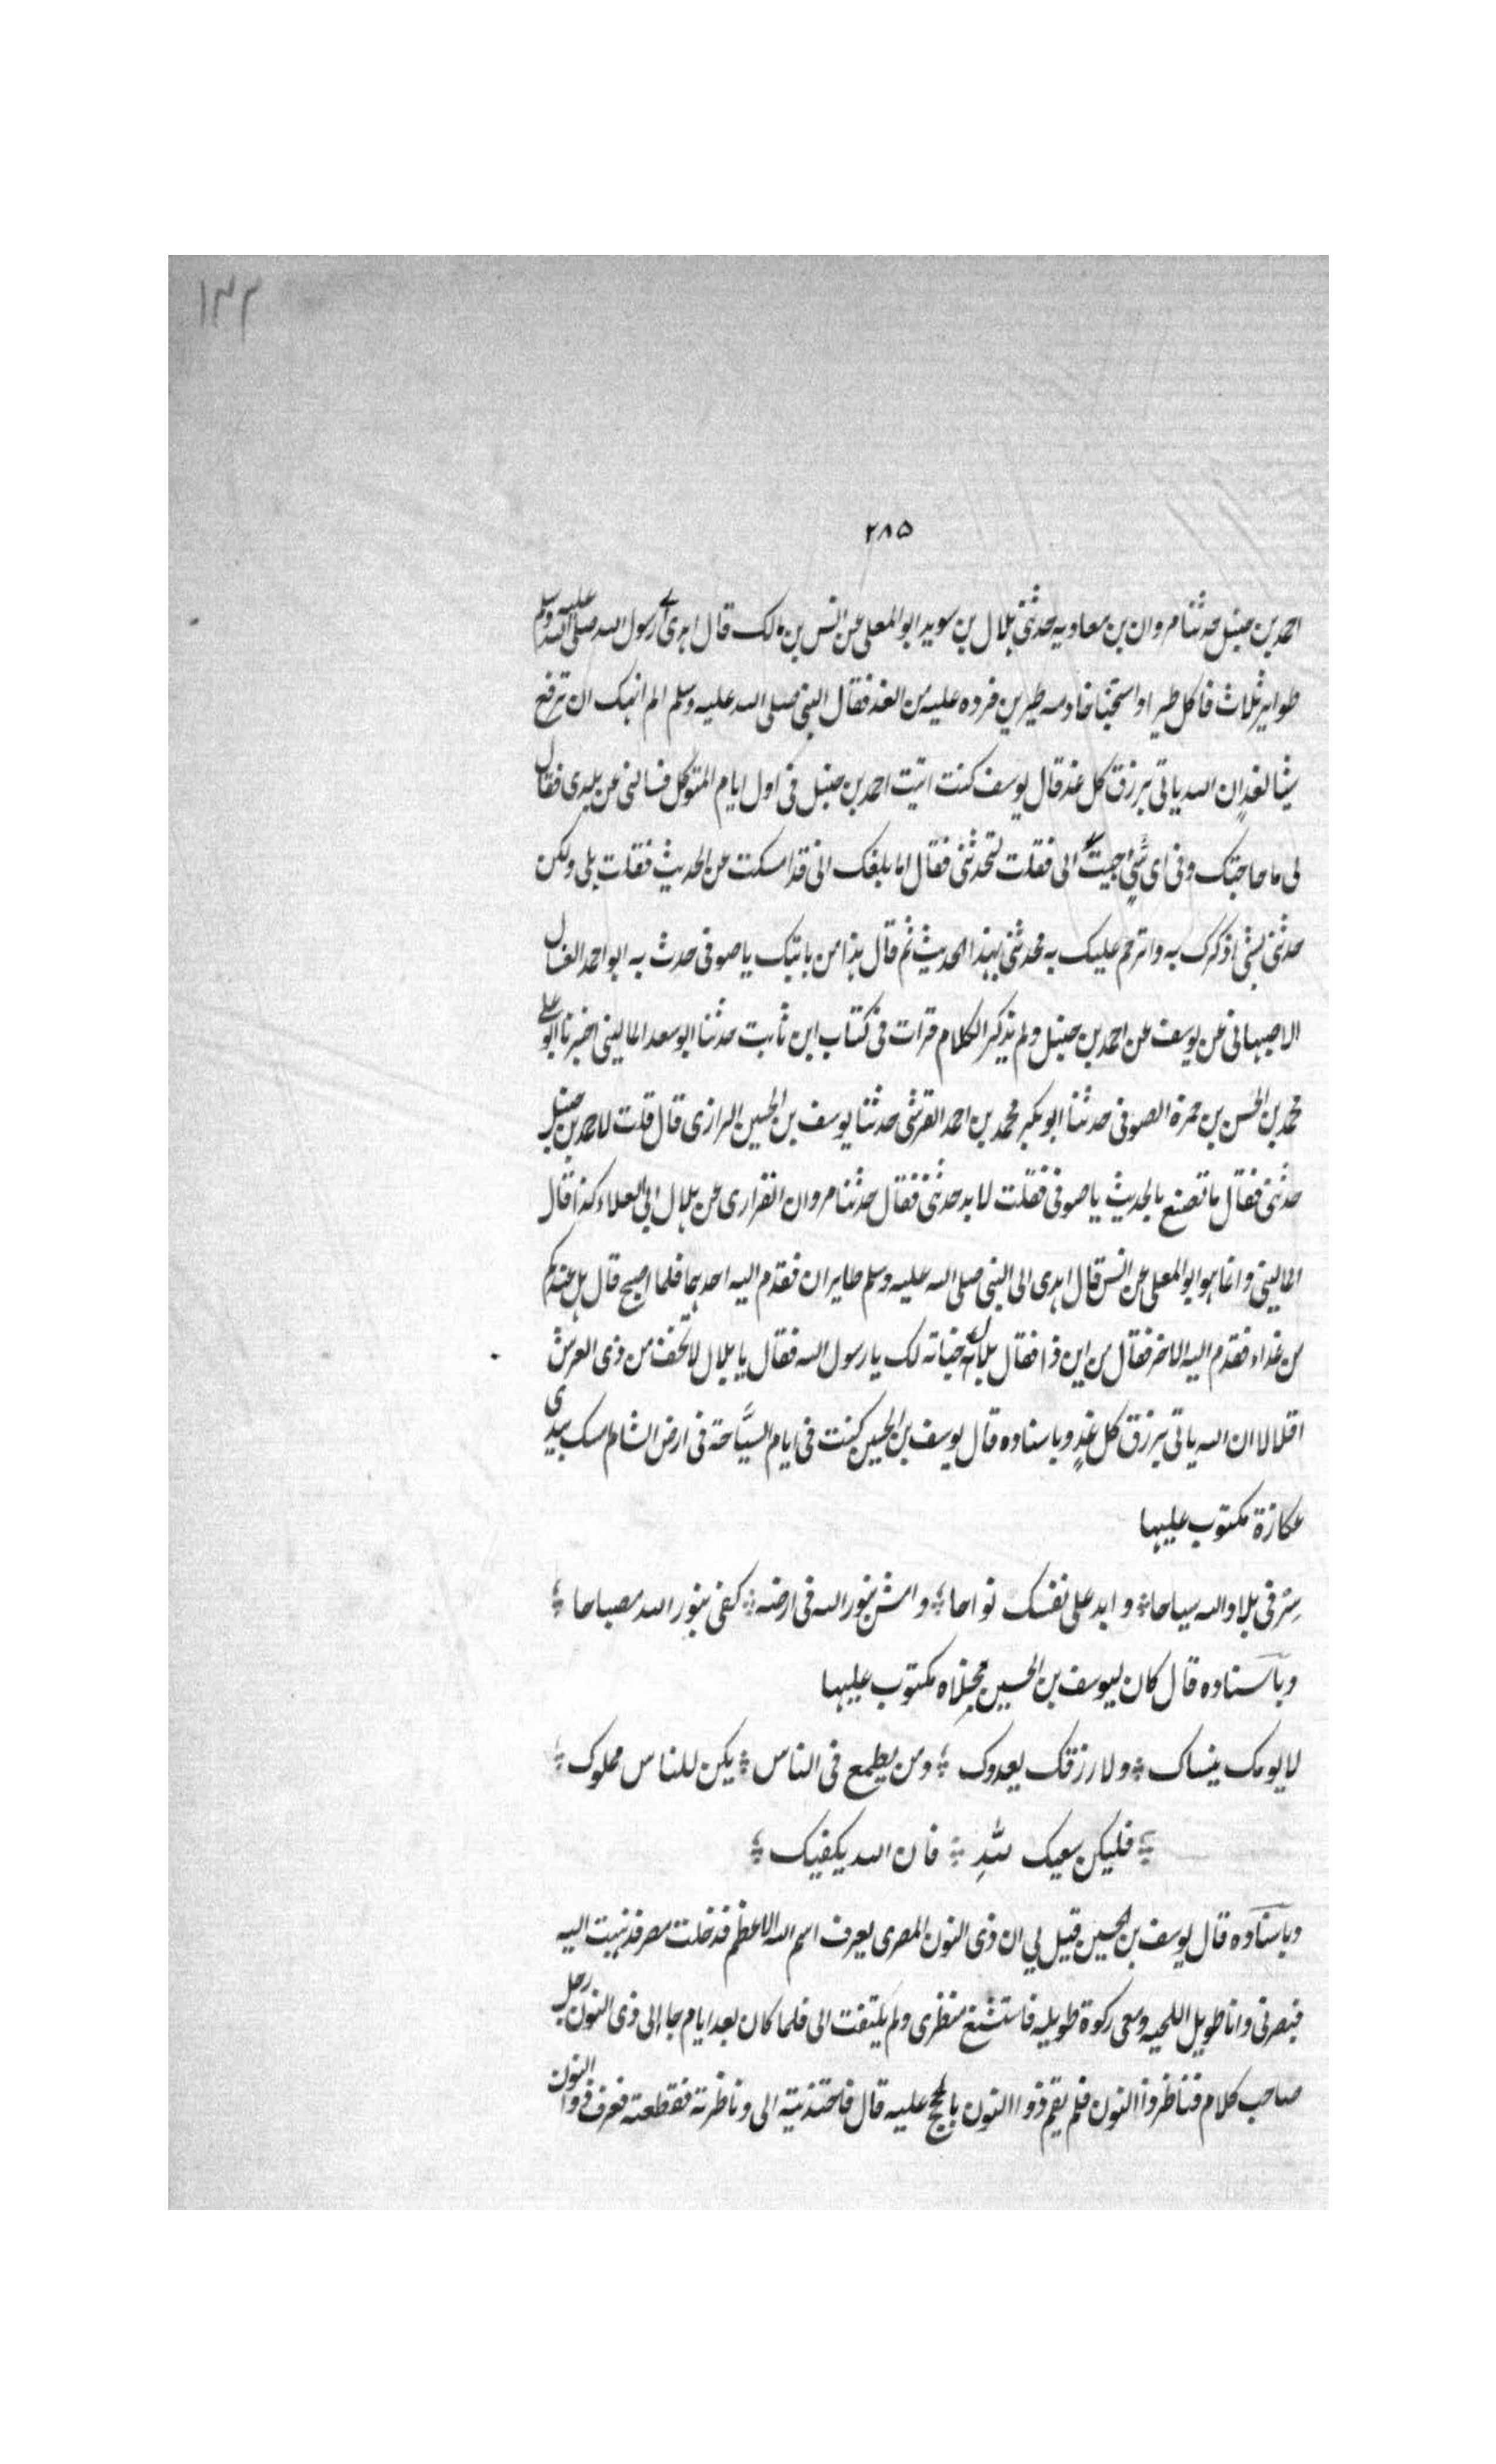 ١٣٢
٢٨٥
احمد بن حنبل حدثنا مروان بن معاويه حدثنى بلال بن سويد ابو المعلى عن انس بن مالك قال اهدى لرسول الله صلى الله عليه وسلم
طواير ثلاث فاكل طيرا واستخبنا خادمه طيرين فرده عليه من الغد فقال النبى صلى الله عليه وسلم الم انهك ان ترفع
شيا لغد ان الله ياتى برزق كل غد قال يوسف كنت اتيت احمد بن حنبل فى اول ايام المتوكل فسالنى عن بلدى فقال
لى ما حاجتك وفى اى شئ جيت الى فقلت لتحدثنى فقال اما بلغك انى قد امسكت عن الحديث فقلت بلى ولكن
حدثنى بشئ اذكرك به واترحم عليك به فحدثنى بهذا الحديث ثم قال هذا من بابتك يا صوفى حدث به ابو احمد العسال
الاصبهانى عن يوسف عن احمد بن حنبل ولم يذكر الكلام قرات فى كتاب ابن ثابت حدثنا ابو سعد المالينى اخبرنا ابو على
محمد بن الحسن بن حمزة الصوفى حدثنا ابو بكر محمد بن احمد القرشى حدثنا يوسف بن الحسين الرازى قال قلت لاحمد بن حنبل
حدثنى فقال ما تصنع بالحديث يا صوفى فقلت لا بد حدثنى فقال حدثنا مروان الفزارى عن بلال ابى العلاء كذا قال
المالينى وانما هو ابو المعلى عن انس قال اهدى الى النبى صلى الله عليه وسلم طايران فقدم اليه احدهما فلما اصبح قال هل عندكم
من غداء فقدم اليه الاخر فقال من اين ذا فقال بلال خباته لك يا رسول الله فقال يا بلال لا تخف من ذى العرش
اقلالا ان الله ياتى برزق كل غدٍ وباسناده قال يوسف بن الحسين كنت فى ايام السيّاحة فى ارض الشام امسك بيدى
عكازة مكتوب عليها
سِرْ فى بلاد الله سياحا ؛ وابد على نفسك نواحا ؛ وامش بنور الله فى ارضه ؛ كفى بنور الله مصباحا ؛
وباسناده قال كان ليوسف بن الحسين مخلاه مكتوب عليها
لا يومك ينساك ؛ ولا رزقك يعدوك ؛ ومن يطمع فى الناس ؛ يكن للناس مملوك ؛
؛ فليكن سعيك للهِ ؛ فان الله يكفيك ؛
وباسناده قال يوسف بن الحسين قيل لى ان ذى النون المصرى يعرف اسم الله الاعظم فدخلت مصر فذهبت اليه
فبصرنى وانا طويل اللحيه ومعى ركوة طويله فاستشنع منظرى ولم يلتفت الى فلما كان بعد ايام جا الى ذى النون رجل
صاحب كلام فناظر ذا النون فلم يقم ذو النون بالحجج عليه قال فاجتذبته الى وناظرته فقطعته فعرف ذوا النون